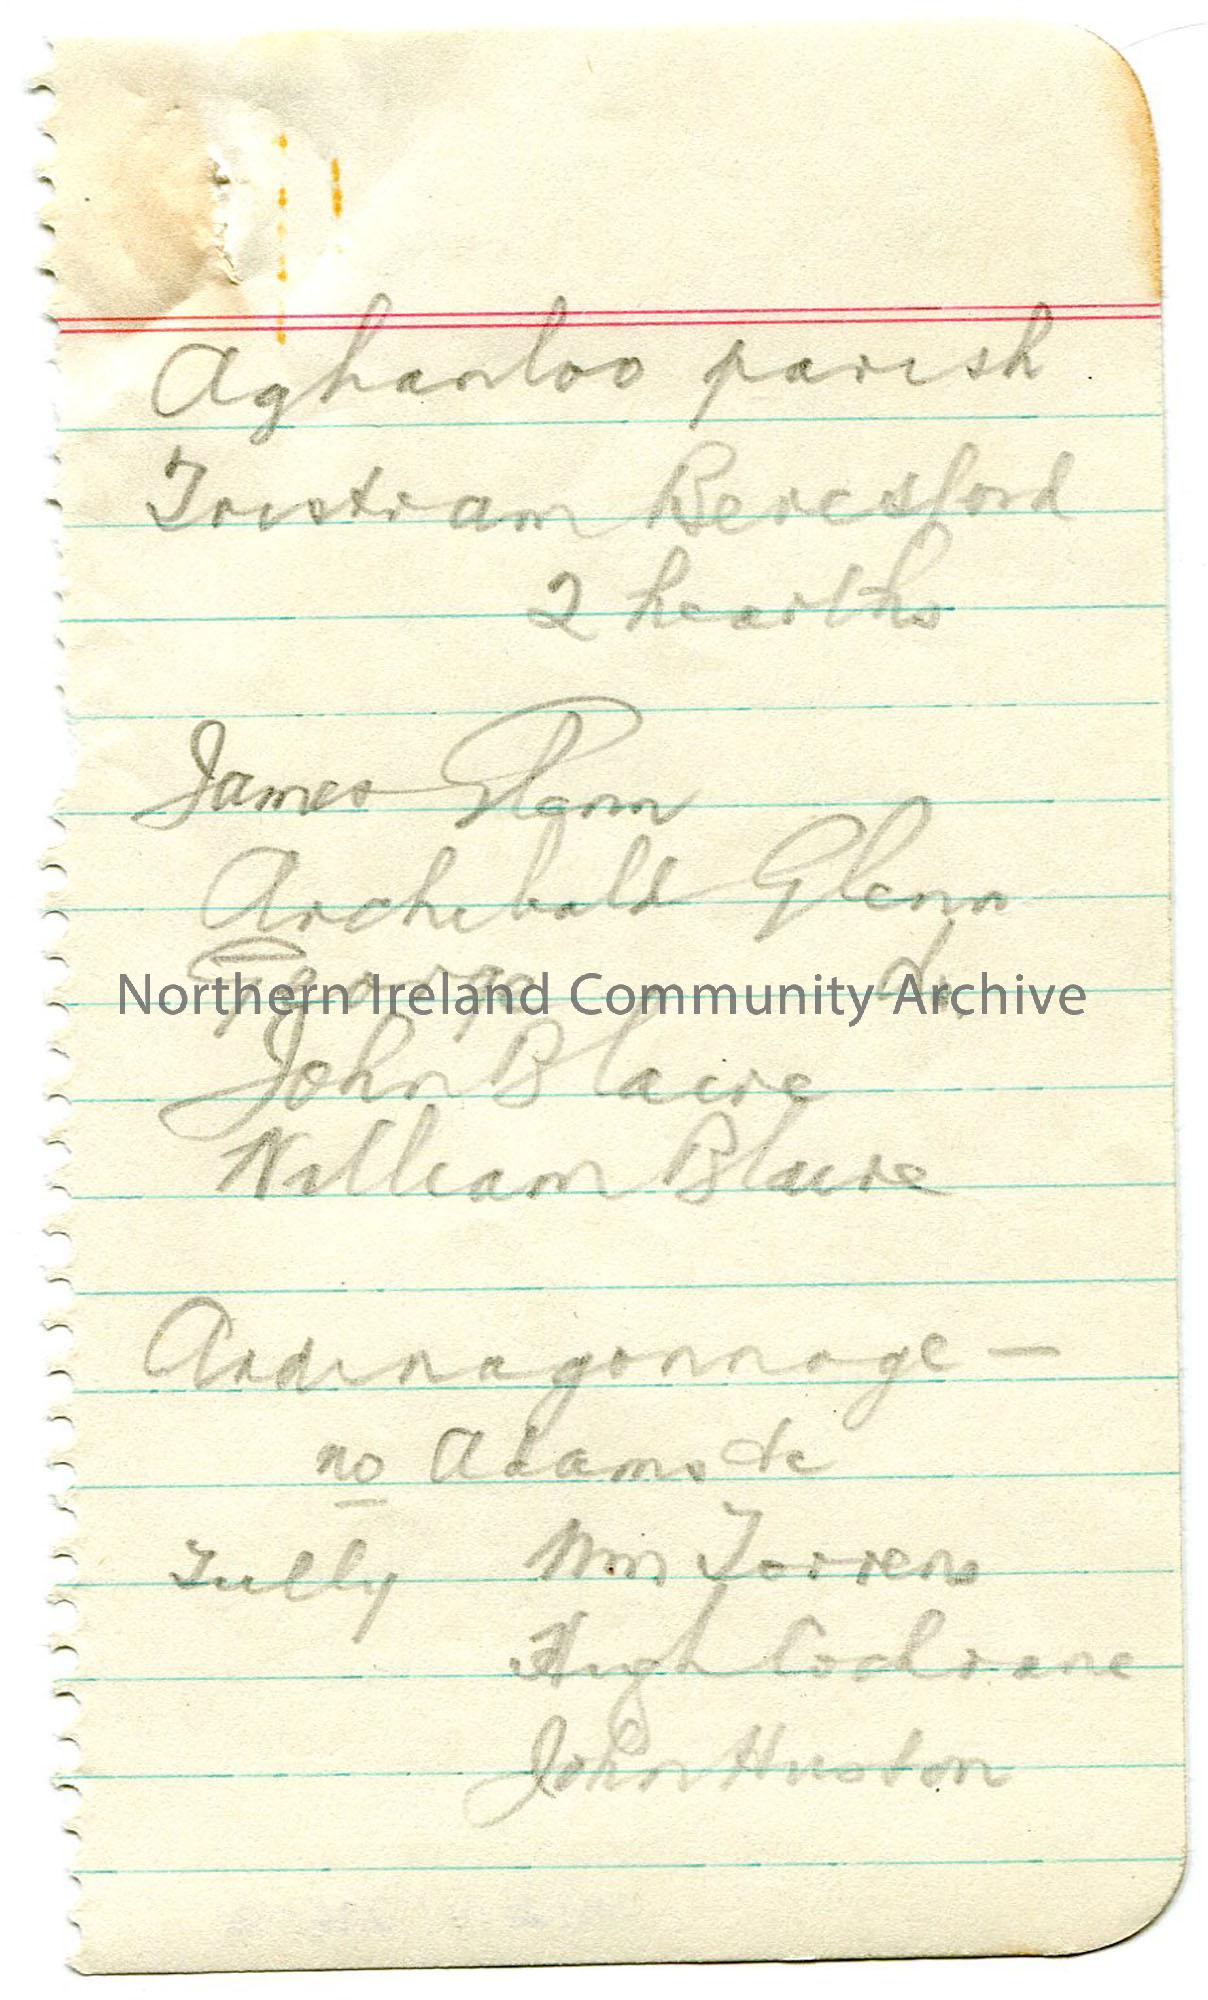 Aghanloo parish
Tristram Beresford
2 hearths
James Glenn
Archibald Glenn
George do.
Northern Ireland Community Archive
John Blaire
William Blaire
Ardinagonnage —
no Adams &c
Tully Wm Torrens
Hugh Cochrane
John Huston